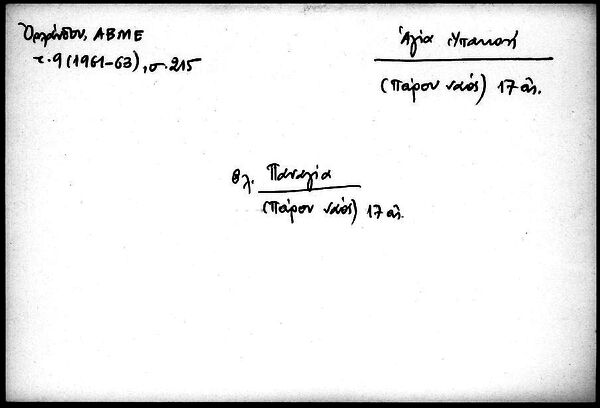 Ὀρλάνδου, ΑΒΜΕ
τ. 9 (1961-63), σ. 215
Ἁγία Ὑπακοή
(Πάρου ναός) 17 αἰ.
βλ. Παναγία
(Πάρου ναός) 17 αἰ.